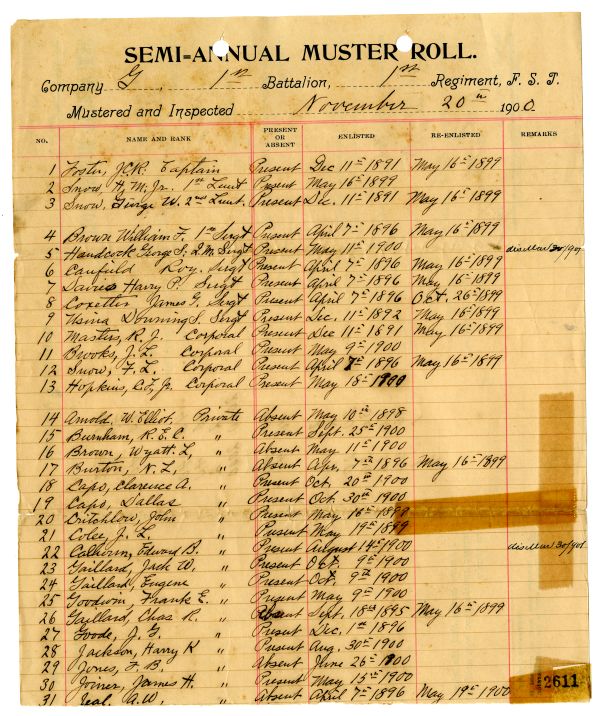 SEMI-ANNUAL MUSTER ROLL.
Company G, 1st Battalion, 1st Regiment, F. S. T.
Mustered and Inspected November 20th 1900.
NO. NAME AND RANK PRESENT OR ABSENT ENLISTED RE-ENLISTED REMARKS
1 Foster, J.C.R. Captain Present Dec 11th 1891 May 16th 1899
2 Snow, H.M. Jr. 1st Lieut Present May 16th 1899
3 Snow, George W. 2nd Lieut. Present Dec. 11th 1891 May 16th 1899
4 Brown William F. 1st Sergt Present April 7th 1896 May 16th 1899
5 Handcock George S. Q.M. Sergt Present May 11th 1900 30/901
6 Canfield Roy. Sergt Present April 7th 1896 May 16th 1899
7 Davies Harry P. Sergt Present April 7th 1896 May 16th 1899
8 Coxetter James G. Sergt Present April 7th 1896 Oct. 26th 1899
9 Usina Downing S. Sergt Present Dec. 11th 1892 May 16th 1899
10 Masters, R. J. Corporal Present Dec 11th 1891 May 16th 1899
11 Brooks, J. E. Corporal Present May 9th 1900
12 Snow, F. L. Corporal Present April 7th 1896 May 16th 1899
13 Hopkins, C.F., Jr. Corporal Present May 18th 1900
14 Arnold, W. Elliot, Private Absent May 10th 1898
15 Burnham, R. E. C. " Present Sept. 25th 1900
16 Brown, Wyatt. L, " Absent May 11th 1900
17 Burton, N. L, " Absent Apr. 7th 1896 May 16th 1899
18 Capo, Clarence A. " Present Oct. 20th 1900
19 Capo, Dallas " Present Oct. 30th 1900
20 Critchlow, John " Present May 16th 1899
21 Colee, J. L. " Present May 19th 1899
22 Calhoun, Edward B. " Present August 14th 1900 30/901
23 Gaillard, Jack W. " Present Oct. 9th 1900
24 Gaillard, Eugene " Present Oct. 9th 1900
25 Goodwin, Frank E. " Present May 9th 1900
26 Gaillard, Chas R. " Absent Sept. 18th 1895 May 16th 1899
27 Goode, J. G. " Present Dec. 1st 1896
28 Jackson, Harry K " Present Aug. 30th 1900
29 Jones, F. B. " Absent June 26th 1900
30 Joiner, James H. " Present May 15th 1900
31 A.W. " Absent April 7th 1896 May 19th 1900
2611